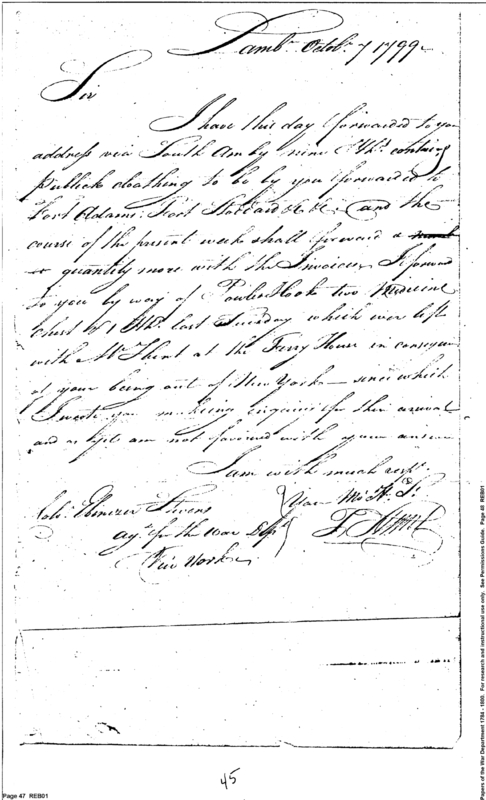 Lambn. Octobr. 7 1799
Sir
I have this day forwarded to you
address via South Amboy nine Hhds. containg
Publick cloathing to be by you forwarded to
Fort Adams, Fort Stoddard &c &c and the
course of the present week shall forward a
quantity more with the Invoices, I forward
to you by way of Powles Hook two Medicine
Chest & 1 Hhd. last Tuesday which wer left
with Mr. Hunt at the Ferry House in consequ
of your being out of New York since which
I wrote you making enquiries for their arrival
and as yet am not favored with your answer
I am with much respt.
Your Mo. H. St.
Colo. Ebenezer Stevens
agt. for the War Dept.
New York
45
Page 47 REB01
Papers of the War Department 1784 - 1800. For research and instructional use only. See Permissions Guide. Page 48 REB01